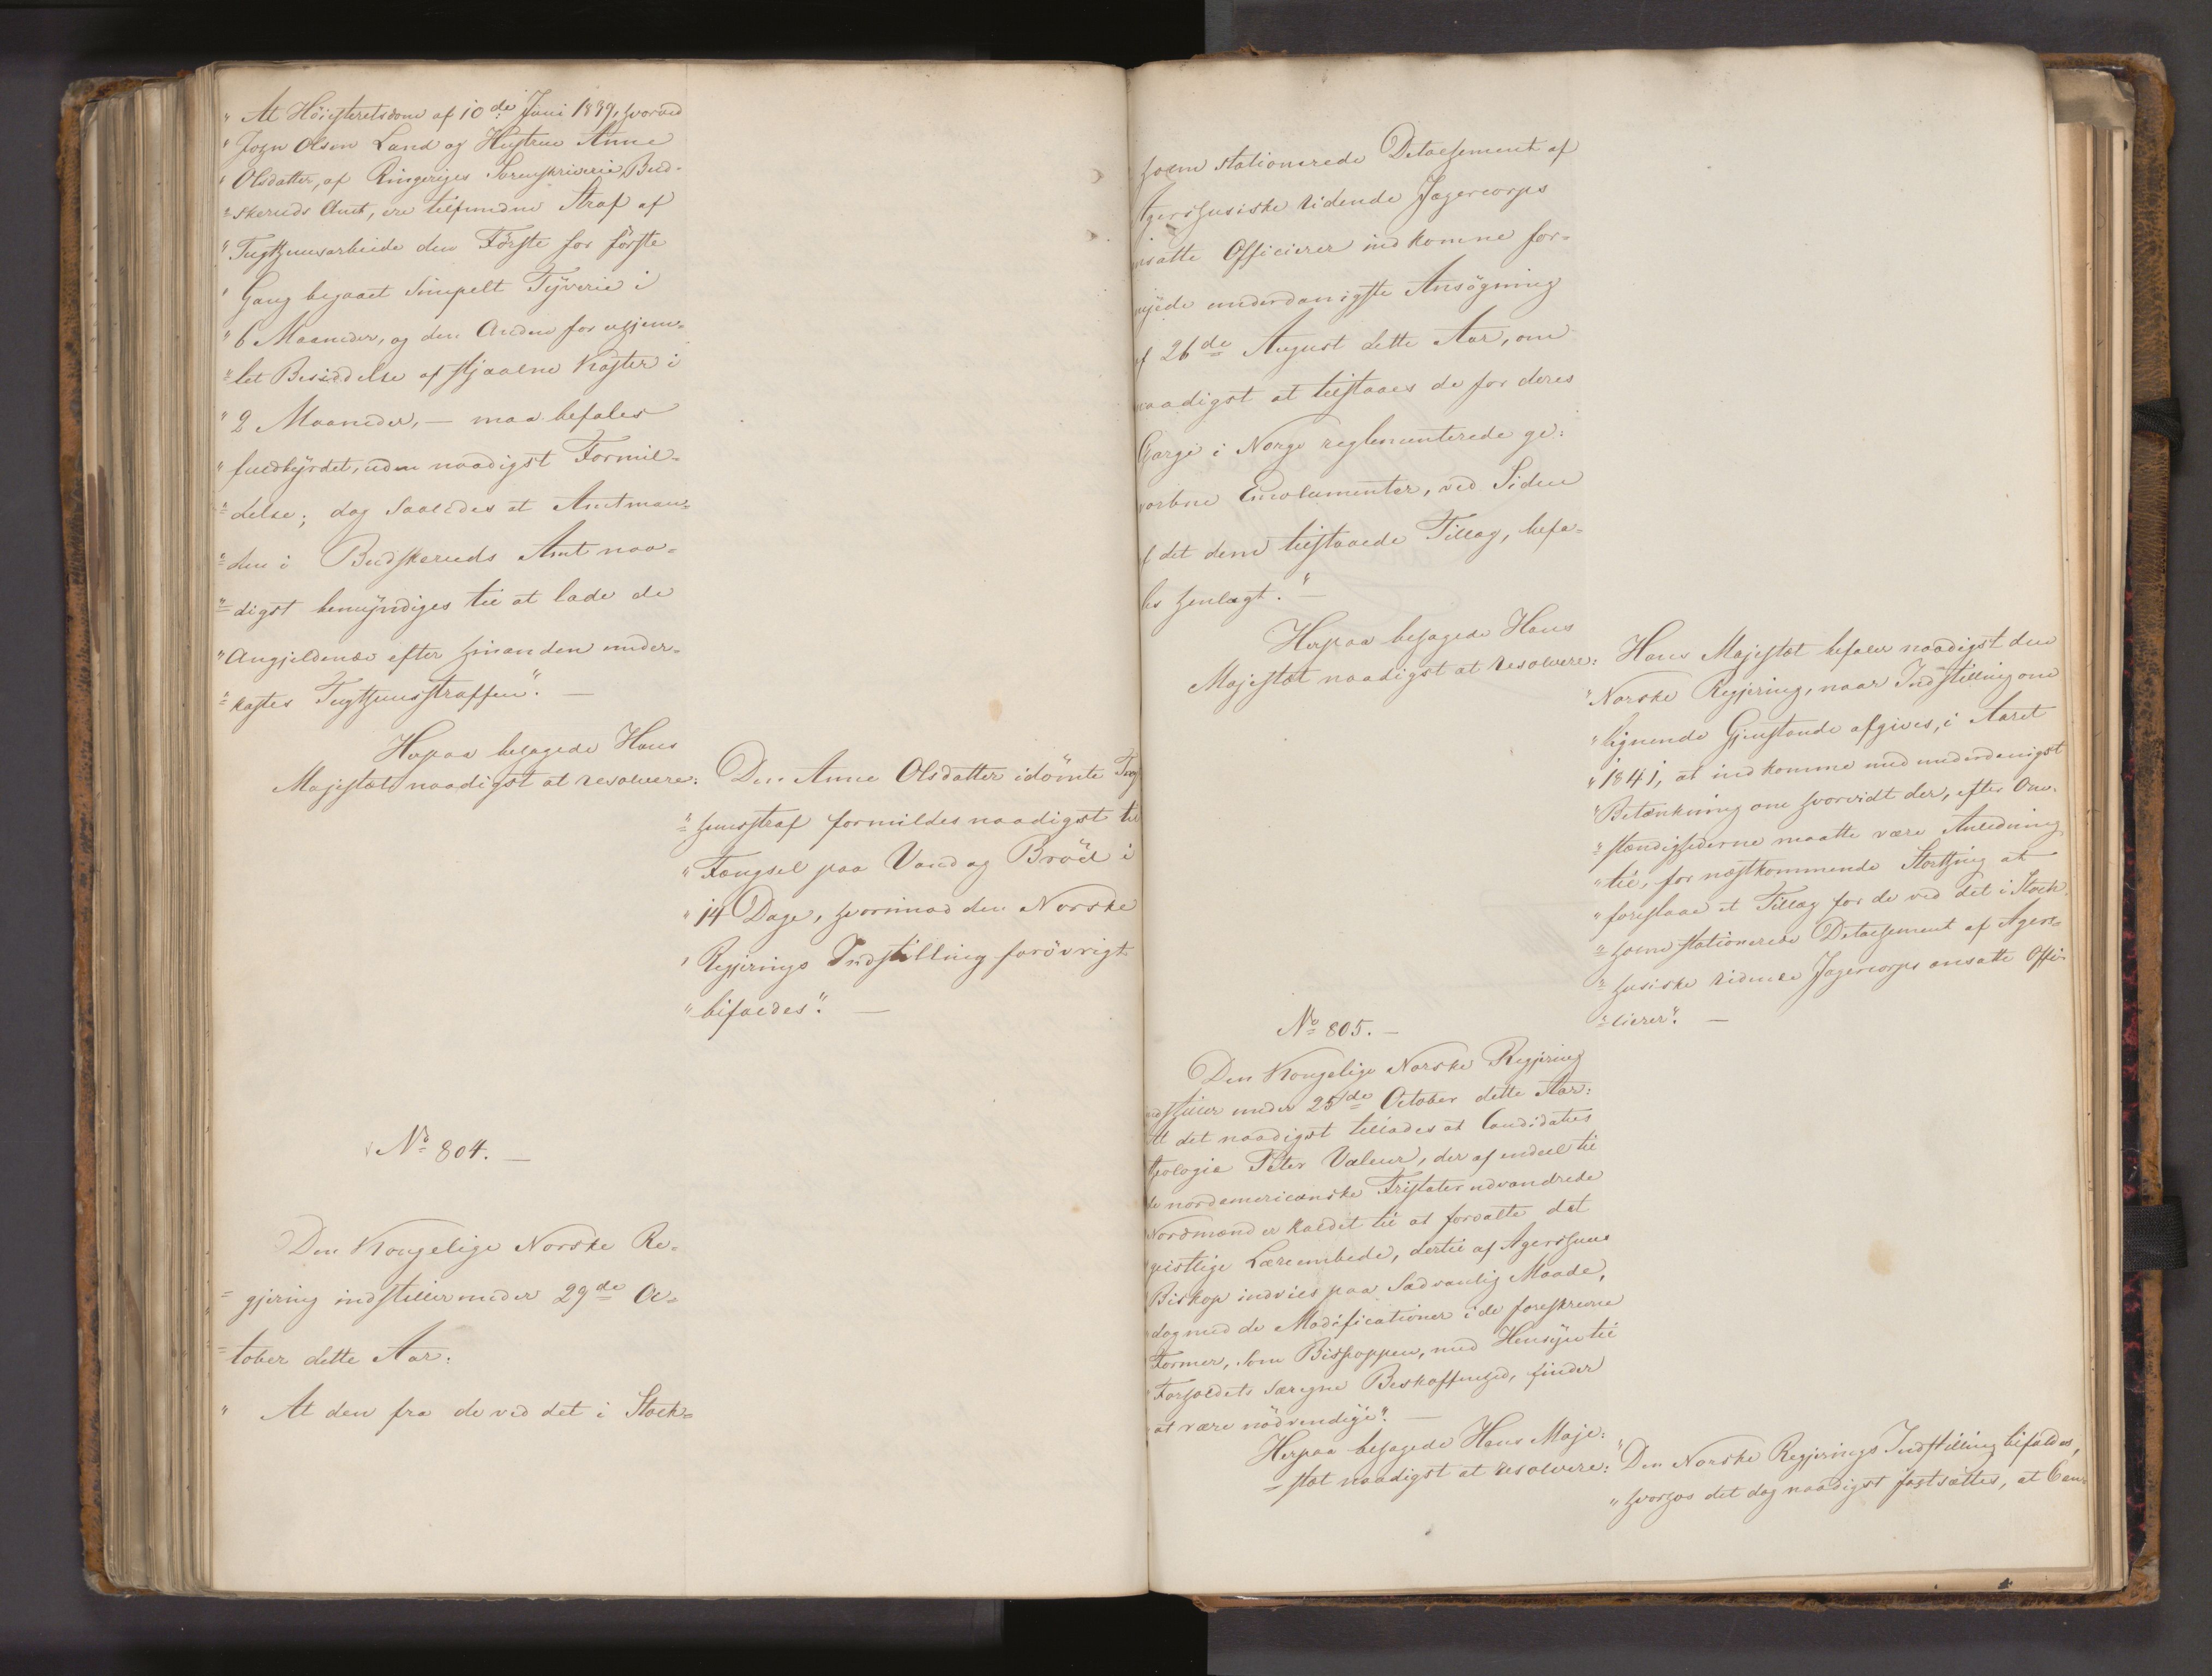 " At Höiesteretsdom af 10de Juni 1839, hvorved
" John Olsen Land og Hustrue Anne
" Olsdatter, af Ringeriges Sorenskriverie, Bud-
"=skeruds Amt, ere tilfundne Straf af
" Tugthuusarbeide den Förste for förste
" Gang begaaet simpelt Tyverie i
" 6 Maaneder, og den Anden for uhjem-
"=let Besiddelse af stjaalne Koster i
" 2 Maaneder, — maa befales
" fuldbyrdet, uden naadigst Formil-
"=delse; dog saaledes at Amtman-
"=den i Budskeruds Amt naa-
"=digst bemyndiges til at lade de
" Angjeldende efter hinanden under-
"=kastes Tugthuusstraffen". —
Herpaa behagede Hans
Majestæt naadigst at resolvere:
Den Anne Olsdatter idömte Tug
"=huusstraf formildes naadigst til
" Fængsel paa Vand og Bröd i
" 14 Dage, hvorimod den Norske
" Regjerings Indstilling forövrigt
" bifaldes". —
No 804. —
Den Kongelige Norske Re-
=gjering indstiller under 29de Oc-
=tober dette Aar:
" At den fra de ved det i Stock-
holm stationerede Detachement af
Agershusiske ridende Jægercorps
ansatte Officierer indkomne for-
nyede underdanigste Ansögning
af 26de August dette Aar, om
naadigst at tilstaaes de for deres
Charge i Norge reglementerede ge-
vorbne Emolumenter, ved Siden
af det dem tilstaaede Tillæg, befa-
les henlagt." —
Herpaa behagede Hans
Majestæt naadigst at resolvere:
Hans Majestæt befaler naadigst den
" Norske Regjering, naar Indstilling om
" lignende Gjenstande afgives, i Aaret
" 1841, at indkomme med underdanigst
" Betænkning om hvorvidt der, efter Om-
"=stændighederne maatte være Anledning
" til, for næstkommende Storthing at
" foreslaae et Tillæg for de ved det i Stock-
"=holm stationerede Detachement af Agers-
"=husiske ridende Jægercorps ansatte Offi-
"=cierer". —
No 805. —
Den Kongelige Norske Regjering
indstiller under 25de October dette Aar:
At det naadigst tillades at Candidatus
theologiæ Peter Valeur, der af endeel til
de nordamericanske Fristater udvandrede
Nordmænd er kaldet til at forvalte det
geistlige Læreembede, dertil af Agershuus
Biskop indvies paa sædvanlig Maade,
dog med de Modificationer i de foreskrevne
Former, som Bishoppen, med Hensyn til
Forholdets særegne Beskaffenhed, finder
at være nödvendige". —
Herpaa behagede Hans Maje-
=stæt naadigst at resolvere:
" Den Norske Regjerings Indstilling bifaldes,
" hvorhos det dog naadigst fastsættes, at Can-